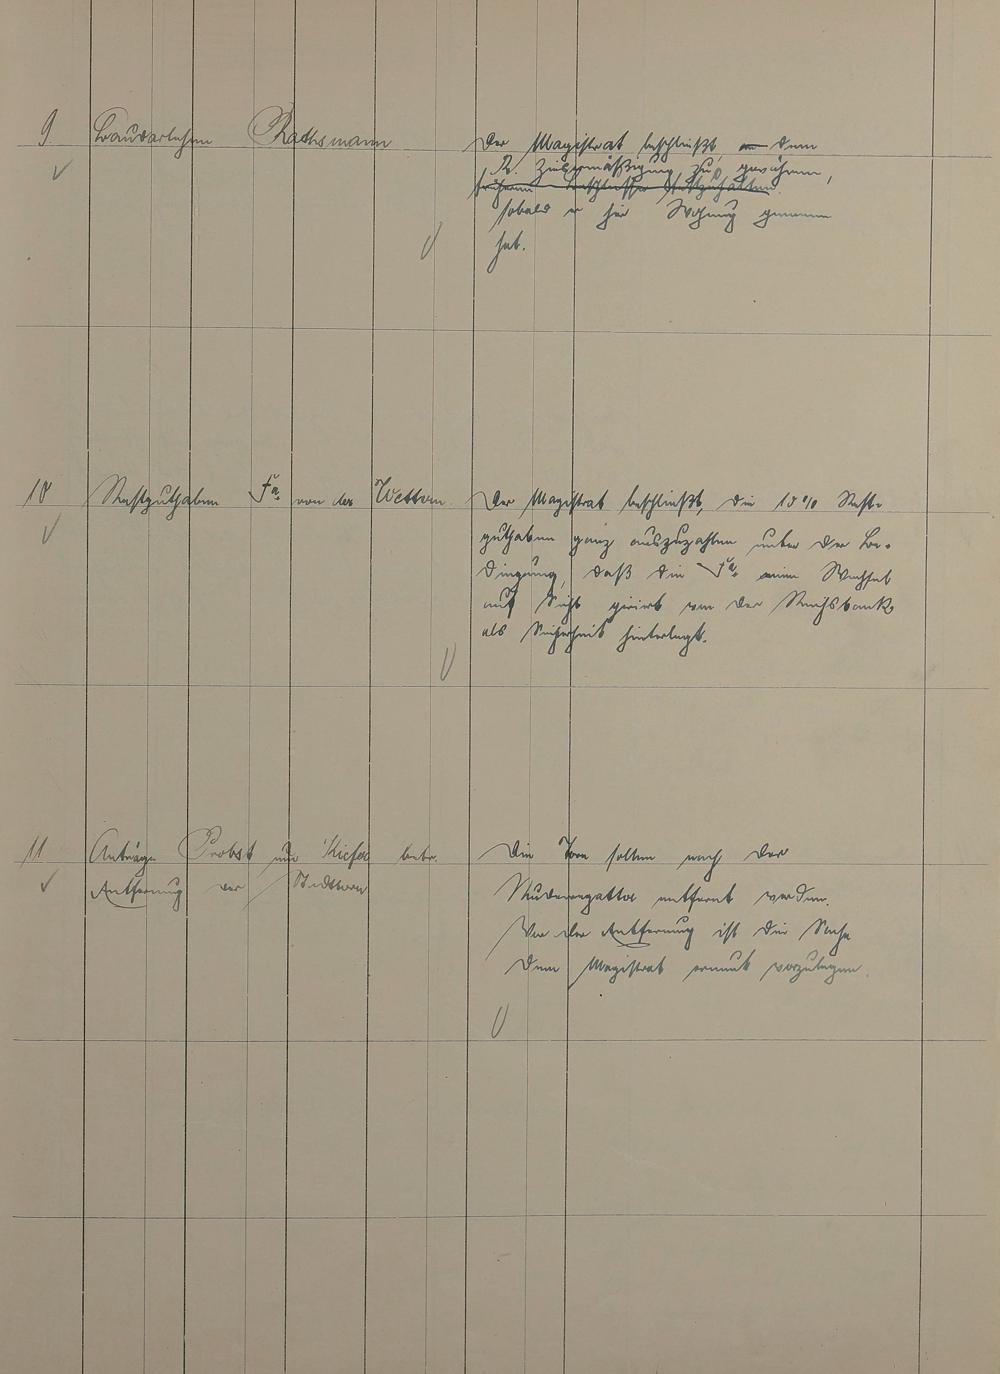 9 Baudarlehen Rathsmann
Der Magistrat beschließt, dem
R. Zinsermäßigung zu gewähren,
früheren Beschlusse festzuhalten.
sobald er hier Wohnung genommen
hat.
10 Restguthaben Fa. von der Wettern
Der Magistrat beschließt, die 10% Rest-
guthaben ganz auszuzahlen unter der Be-
dingung, daß die Fa. einen Wechsel
auf Sicht giriert von der Reichsbank
als Sicherheit hinterlegt.
11 Anträge Probst und Kiefer betr.
Entfernung der Stadttore
Die Tore sollen nach der
entfernt werden.
Vor der Entfernung ist die Sache
dem Magistrat erneut vorzulegen.